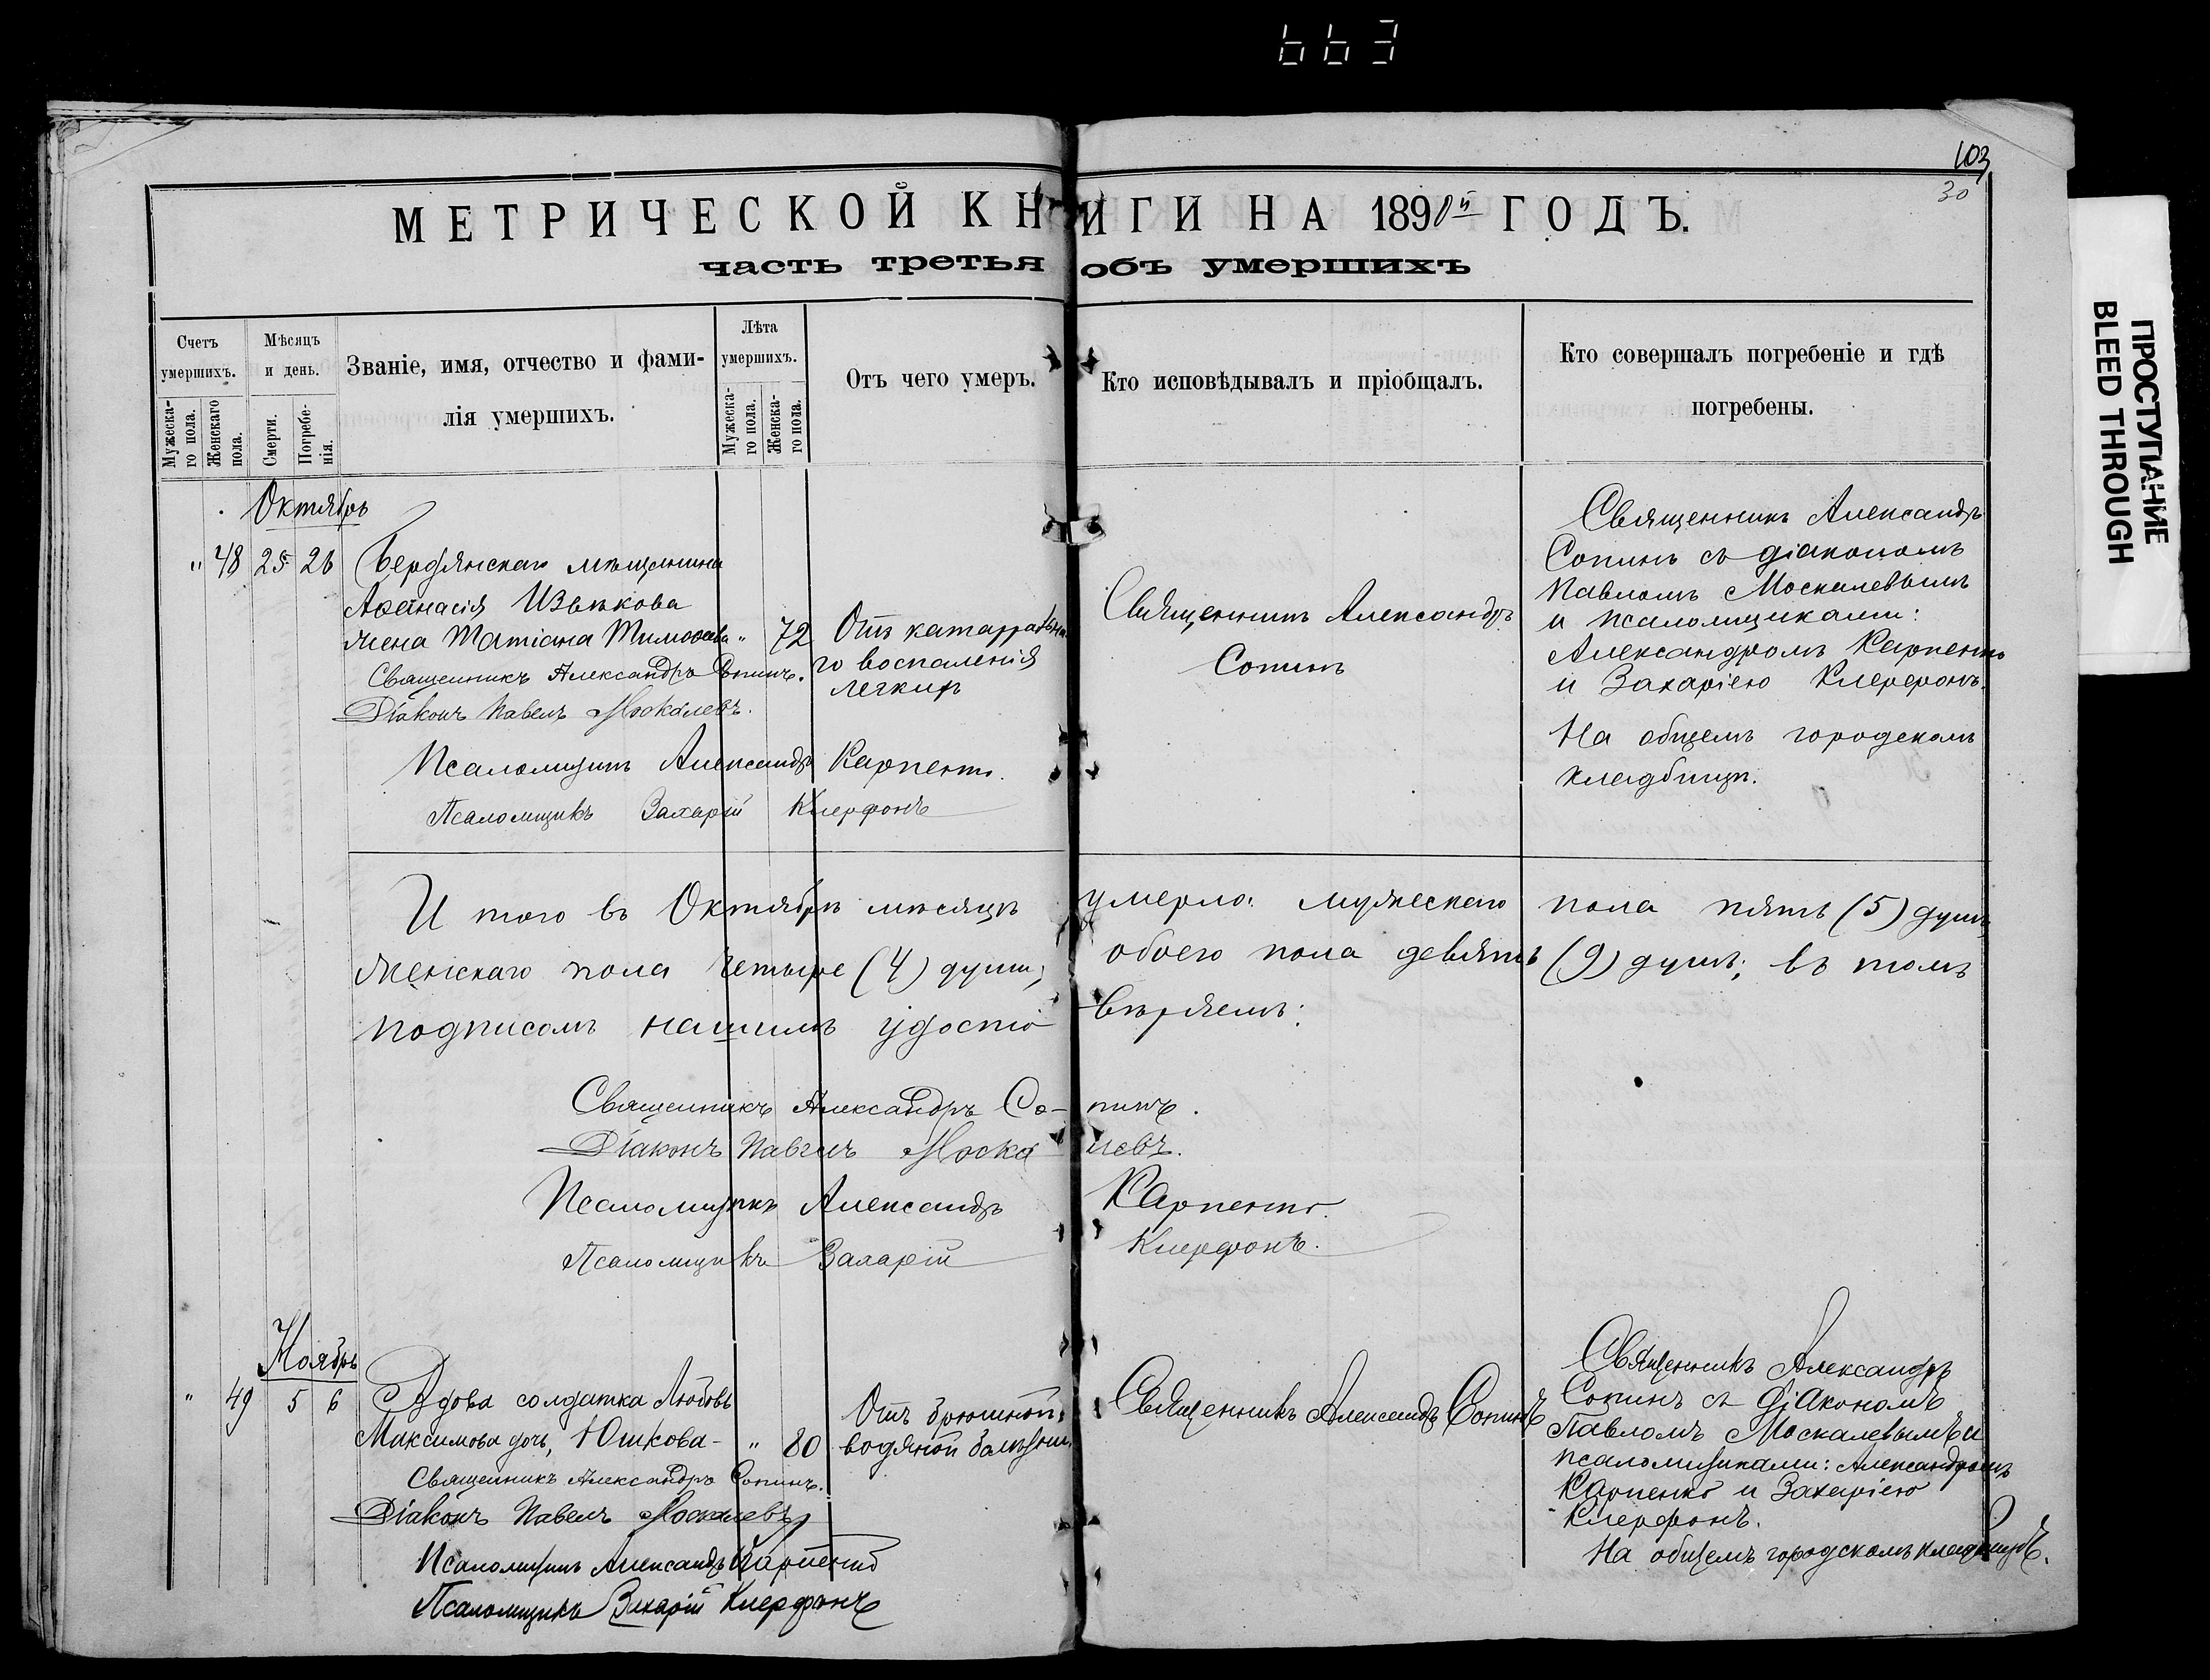 663
103
30
МЕТРИЧЕСКОЙ КНИГИ НА 1890й ГОДЪ.
часть третья объ умершихъ
Счетъ умершихъ.
Мужеска-го пола.
Женскаго пола.
Мѣсяцъ и день.
Смерти.
Погребе-нія.
Званіе, имя, отчество и фами-
лія умершихъ.
Лѣта умершихъ.
Мужеска-го пола.
Женска-го пола.
Отъ чего умеръ.
Кто исповѣдывалъ и пріобщалъ.
Кто совершалъ погребеніе и гдѣ
погребены.
Октябрь
" 48 25 26 Бердянскаго мѣщанина
Аѳанасія Извѣкова
жена Татіана Тимоѳеева " 72
Священникъ Александръ Сопинъ.
Діаконъ Павелъ Москалевъ.
Псаломщикъ Александръ Карпенко.
Псаломщикъ Захарій Клерфонъ
Отъ катарральна
го воспаленія
легкихъ
Священникъ Александръ
Сопинъ
Священникъ Александръ
Сопинъ съ діакономъ
Павломъ Москалевымъ
и псаломщиками:
Александромъ Карпенко
и Захаріею Клерфонъ.
На общемъ городскомъ
кладбищѣ.
И того въ Октябрѣ мѣсяцѣ умерло: мужескаго пола пять (5) душъ,
женскаго пола четыре (4) души, обоего пола девять (9) душъ; въ томъ
подписомъ нашимъ удосто вѣряемъ:
Священникъ Александръ Со- пинъ.
Діаконъ Павелъ Моска левъ.
Псаломщикъ Александръ Карпенко.
Псаломщикъ Захарій Клерфонъ.
Ноябрь
" 49 5 6 Вдова солдатка Любовь
Максимова дочь, Юшкова- " 80
Священникъ Александръ Сопинъ.
Діаконъ Павелъ Москалевъ
Псаломщикъ Александръ Карпенко
Псаломщикъ Захарій Клерфонъ
Отъ брюшной
водяной болѣзни
Священникъ Александръ Сопинъ
Священникъ Александръ
Сопинъ съ діакономъ
Павломъ Москалевымъ и
псаломщиками: Александромъ
Карпенко и Захаріею
Клерфонъ.
На общемъ городскомъ кладбищѣ.
ПРОСТУПАНИЕ
BLEED THROUGH